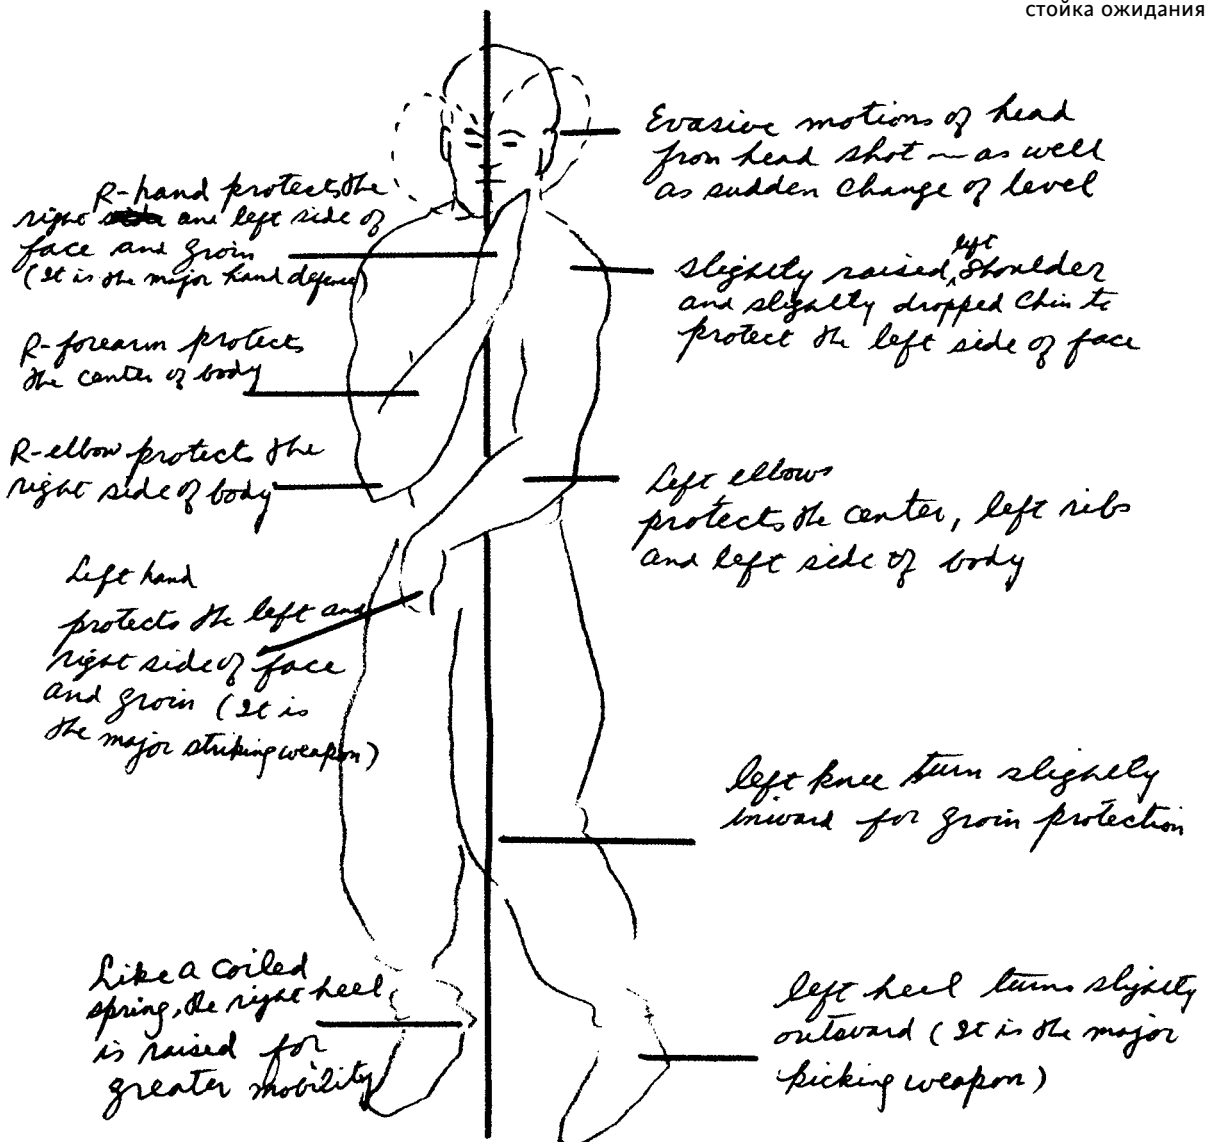 стойка ожидания
Evasive motions of head
from head shot — as well
as sudden change of level
R-hand protects the
right and left side of
face and groin
(It is the major hand defense)
slightly raised, left shoulder
and slightly dropped chin to
protect the left side of face
R-forearm protects
the center of body
R-elbow protects the
right side of body
Left elbows
protects the center, left ribs
and left side of body
Left hand
protects the left and
right side of face
and groin (It is
the major striking weapon)
left knee turn slightly
inward for groin protection
Like a coiled
spring, the right heel
is raised for
greater mobility
left heel turns slighty
outward (It is the major
kicking weapon)